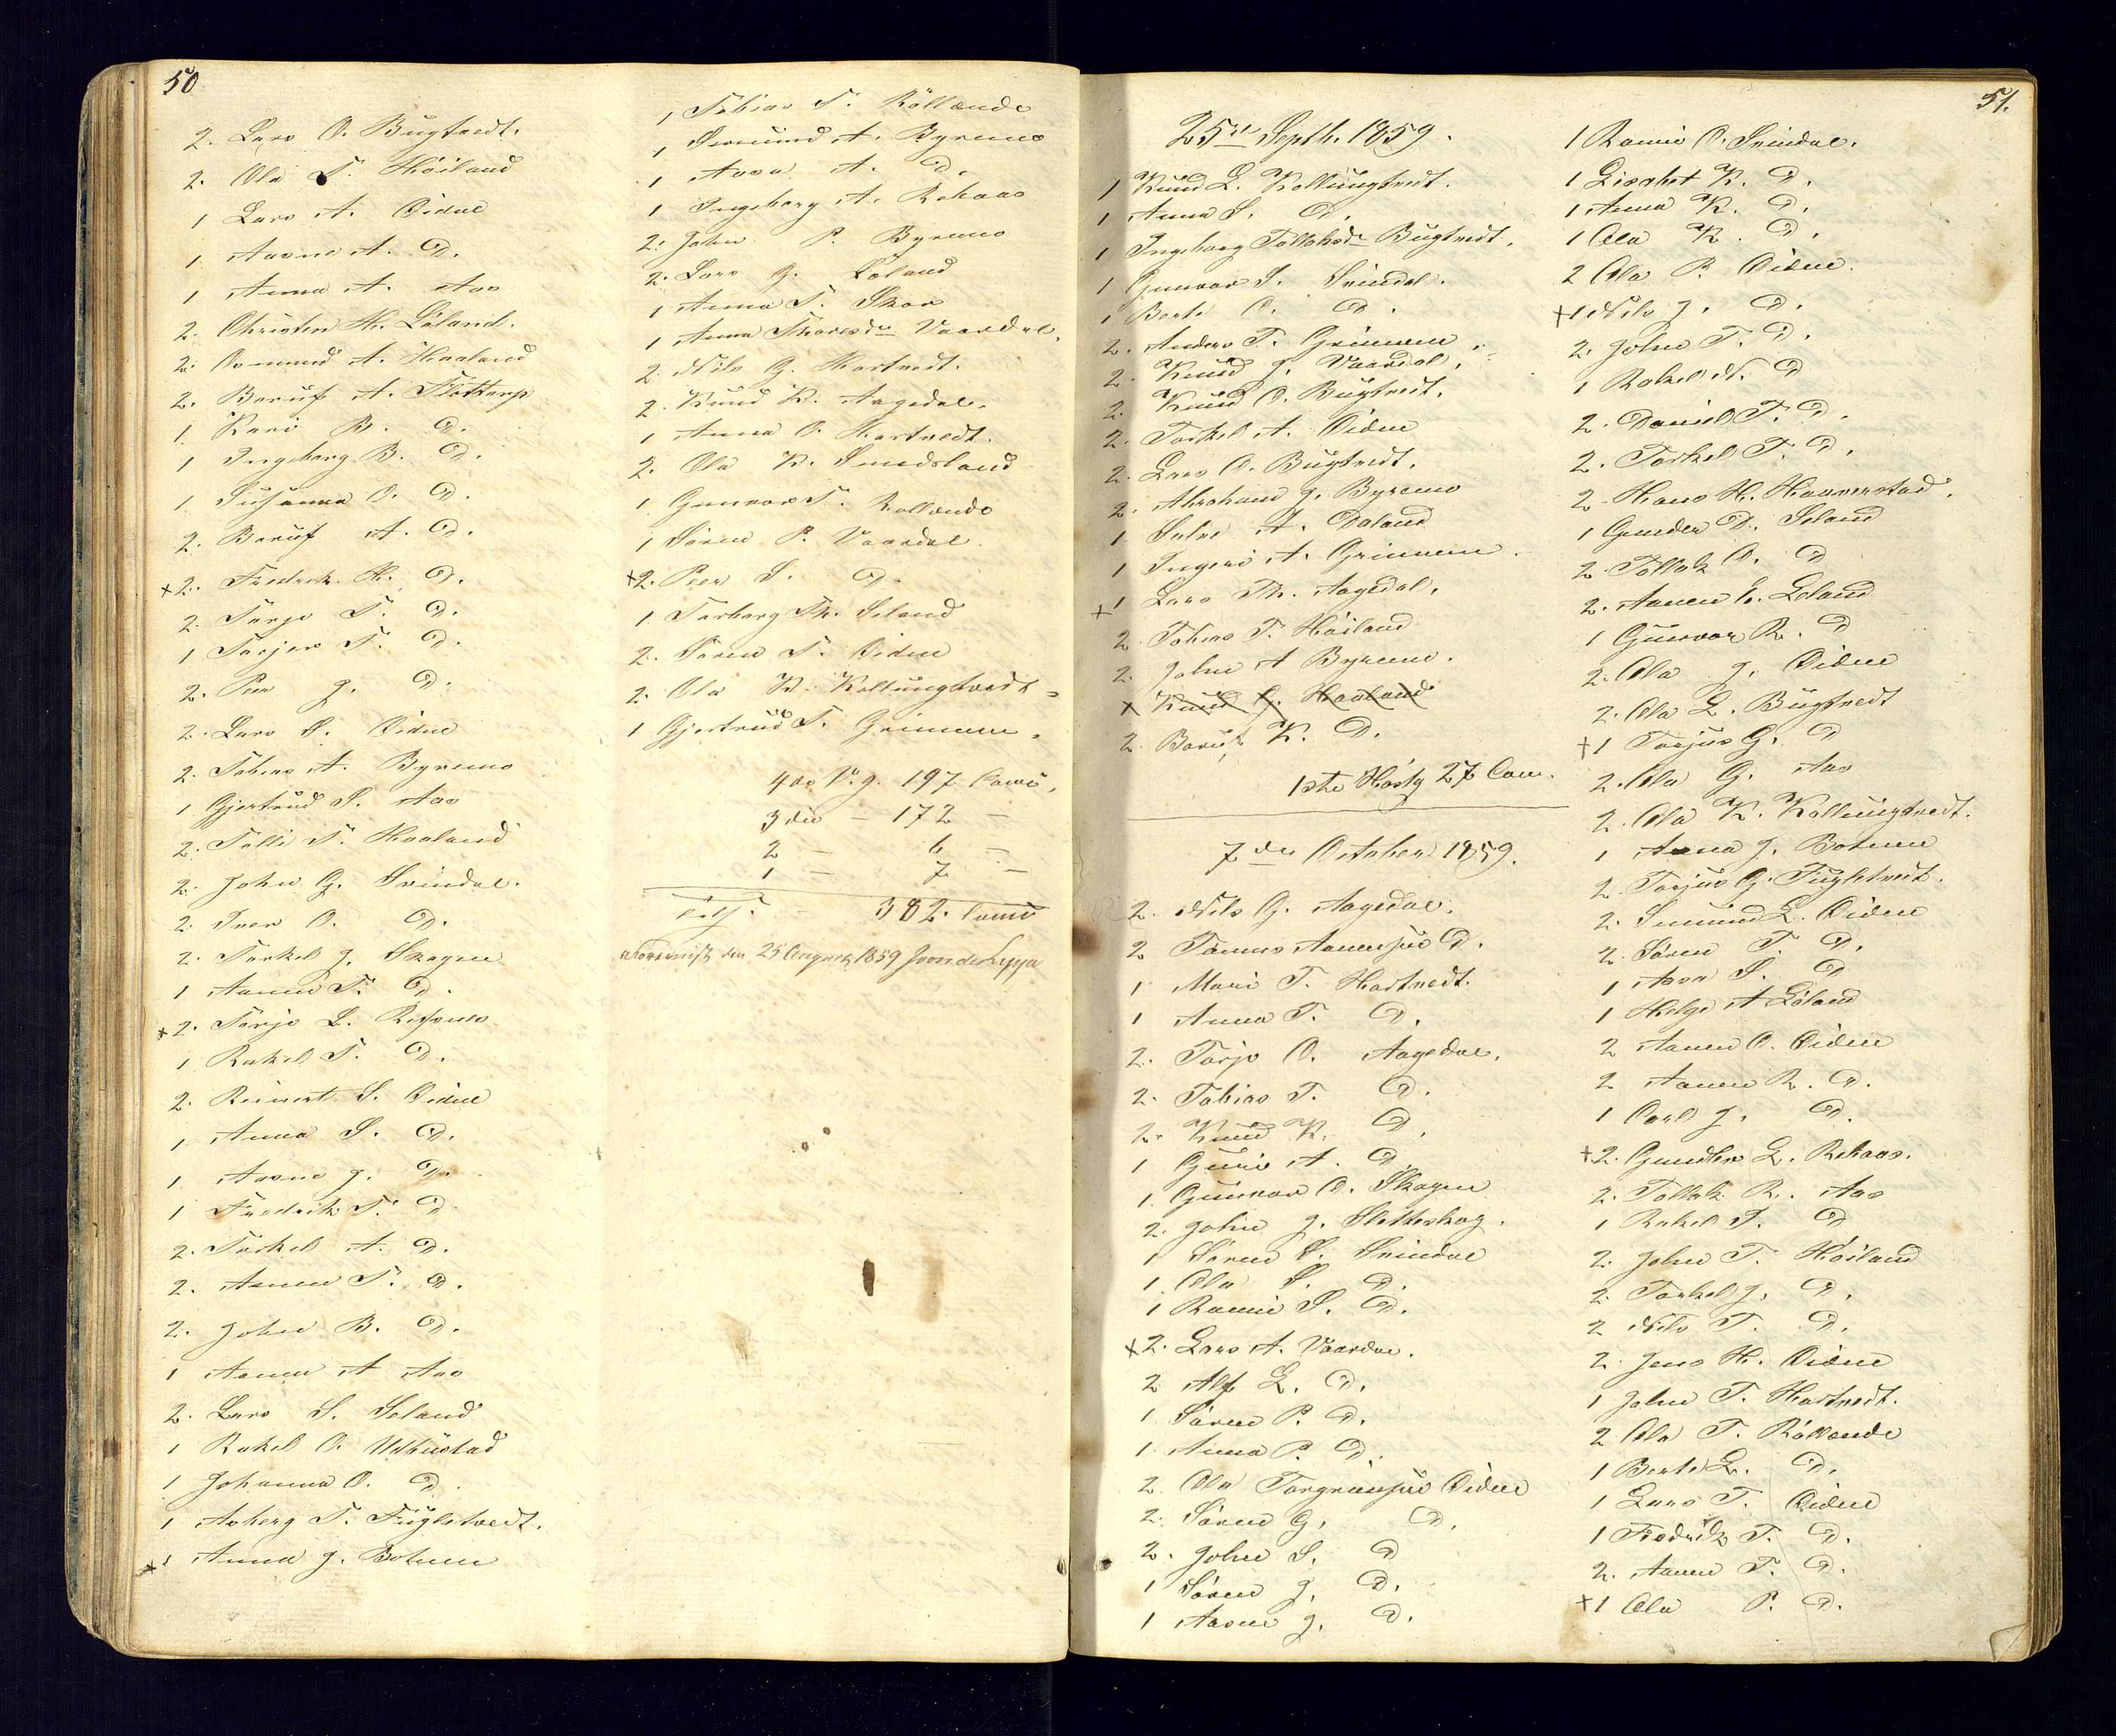 50
2. Lars O. Bugtvedt.
2. Ola T. Höiland
1 Lars A. Eidne
1. Aasne A. D.
1 Anna A. Aas
2. Christen H. Löland.
2. Osmund A. Haaland
2. Beruf A. Flottorp
1. Kari B. D.
1 Ingeborg B. D.
1 Susanna O. D.
2. Beruf A. D.
x 2. Fredrik H. D.
2. Tarje T. D.
1 Torjer T. D.
2. Peer J. D.
2. Lars S. Eidne
2. Tobias A. Byremo
1 Gjertrud S. Aas
2. Tolli T. Haaland
2. John G. Svindal.
2. Iver O. D.
2. Torkel J. Skogen
1 Aanen T. D.
x 2. Tarje L.
1 Rakel T. D.
2. Reinert S. Eidne
1, Anna S. D.
1. Aasne J. D.
1 Fredrik T. D
2. Torkel A. D.
2. Aanen T. D.
2. John B. D.
1 Aanen A Aas
2. Lars S. Seland
1 Rakel O. Udbustad
1 Johanna O. D.
1 Asberg T. Fugletvedt.
x 1 Anna J. Botnen
1 Tobias T. Röllende
1 Osmund A. Byremo
1 Aasa A. D.
1 Ingeborg A. Rehaas
2. John P. Byremo
2. Lars G. Löland
1 Anna T. Skar
1 Anna Tharesdr Vaardal.
2. Nils G. Hartvedt.
2. Knud K. Aagedal.
1 Anna O. Hartvedt.
2. Ola K. Smedsland
1. Gunvor T. Röllende
1 Sören P. Vaardal.
x 2. Peer S. D.
1 Torborg Th. Seland
2. Sören T. Eidne
2. Ola K. Kollungtvedt
1 Gjertrud T. Grimnem.
4de V. g. 197
3die — 172 —
2 — 6 —
1 — 7 —
382
den 25 August 1859
51.
25de Septb. 1859.
1 Knud L. Kollungtvedt.
1 Anna S. D.
1 Ingeborg Tollaksdr Bugtvedt.
1 Gunvor S. Svindal.
1 Berte O. D.
2. Anders T. Grimnem.
2. Knud J. Vaardal.
2. Knud O. Bugtvedt.
2. Torkel A. Eidne
2. Lars O. Bugtvedt.
2. Abraham J. Byremo
1 Salve A. Öoland
1 Ingeri A. Grimnem.
x 1 Lars Th. Aagedal.
2. Tobias T. Höiland
2. John A Byremo.
x Knud G. Haaland
2. Beruf K. D.
1ste Høstg 27 Com.
7de October 1859.
2. Nils G. Aagedal.
2 Tönnes Aanensen D.
1. Mari T. Hartvedt.
1 Anna T. D.
2. Tarje O. Aagedal.
2. Tobias T. D.
2. Knud K. D.
1 Guri A. D
1. Gunvor O. Skogen
2. John J. Sletteskog.
1 Sören S. Svindal
1. Ola S. D.
1 Rannei S. D.
x 2. Lars A. Vaardal.
2 Alf L. D.
1. Sören P. D.
1. Anna P. D.
2. Ola Torgrimsen Eidne
2. Sören G. D.
2. John S. D
1 Sören J. D.
1 Aasne J. D.
1 Rannei O. Svindal.
1 Lisabet K. D.
1 Anna K. D.
1 Ola K. D.
2 Ola P. Eidne.
x 1 Nils J. D.
2. John T. D.
1 Rakel N. D
2. Daniel T. D.
2. Torkel T. D.
2 Hans H. Haaverstad.
1 Gunder D. Seland
2. Tollak O. D
2. Aanen E. Löland
1 Gunvor R. D
2. Ola J. Eidne
2. Ola L. Bugtvedt
x 1 Torjus G. D
2. Ola G. Aas
2. Ola K. Kollungtvedt.
1 Anna J. Botnen
2 Torjus G. Fugletvedt.
2. Omund L. Eidne
2. Sören T. D.
1 Aasa S. D
1 Helge A Löland
2 Aanen O. Eidne
2 Aanen R. D.
1 Carl J. D.
x 2. Gunder L. Rehaas.
2. Tollak R. Aas
1 Rakel T. D
2. John T. Höiland
2. Torkel J. D.
2 Nils T. D.
2. Jens H. Eidne
1 John T. Hartvedt.
2 Ola T. Röllende
1 Berte L. D.
1 Lars T. Eidne
1 Fredrik T. D.
2. Aanen T. D.
x 1 Ola P. D.